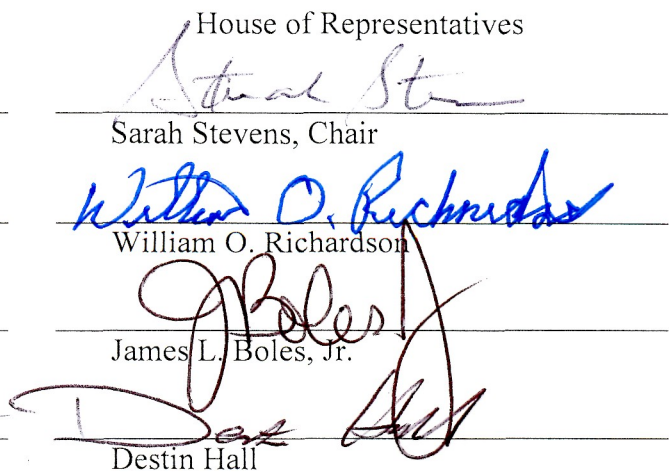 House of Representatives
Sarah Stevens, Chair
William O. Richardson
William O. Richardson
JBoles Jr
James L. Boles, Jr.
Destin Hall